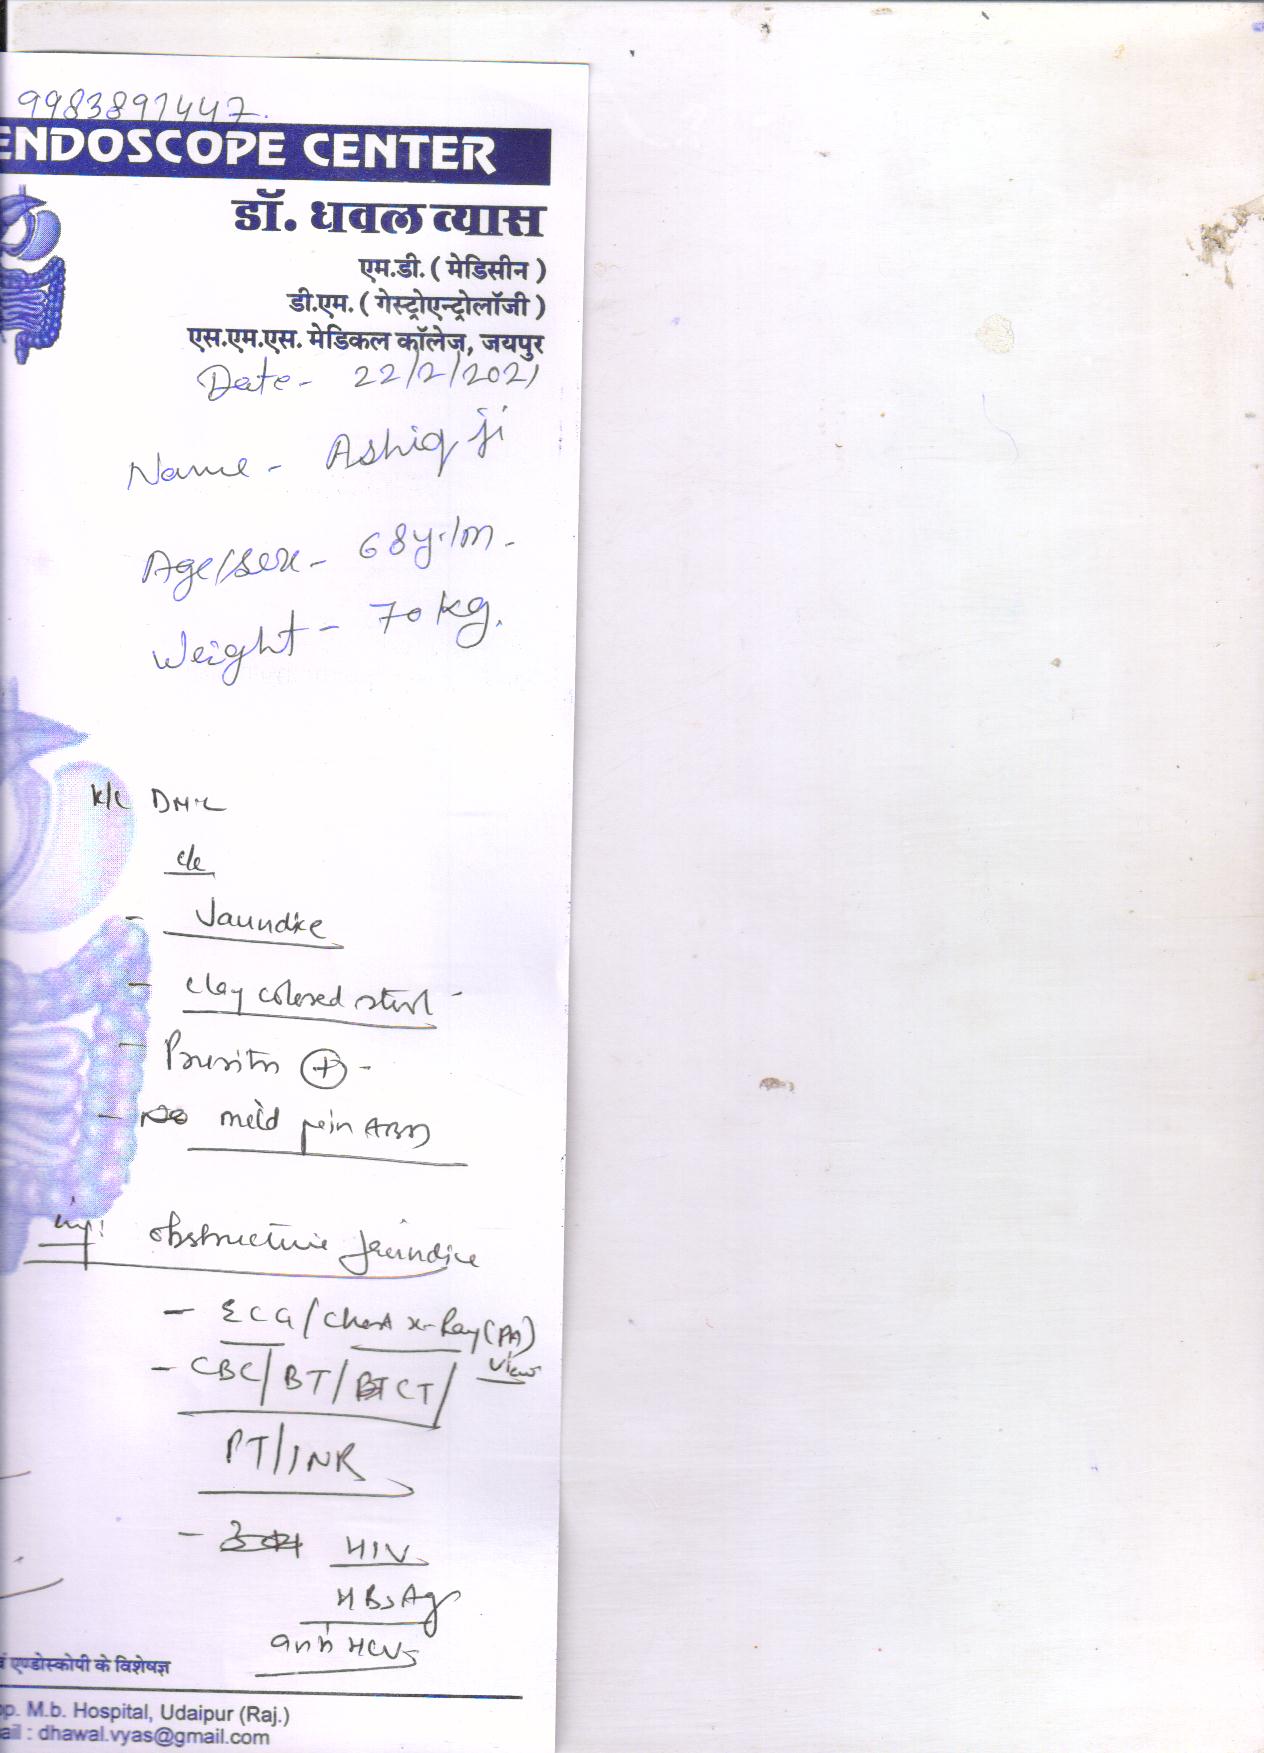 9983891447.
ENDOSCOPE CENTER
डॉ. धवल व्यास
एम.डी. ( मेडिसीन )
डी.एम. ( गेस्ट्रोएन्ट्रोलॉजी )
एस.एम.एस. मेडिकल कॉलेज, जयपुर
Date - 22/2/2021
Name - Ashiq ji
Age/sex - 68y./m.
Weight - 70 kg.
K/C
c/o
- Jaundice
- clay colored stool -
- (+) -
- mild pain ABD
Imp: obstructive jaundice
- ECG / Chest x-Ray (PA)
view
- CBC / BT / CT /
PT/INR
- HIV
HBsAg
anti HCV
एण्डोस्कोपी के विशेषज्ञ
pp. M.b. Hospital, Udaipur (Raj.)
ail : dhawal.vyas@gmail.com